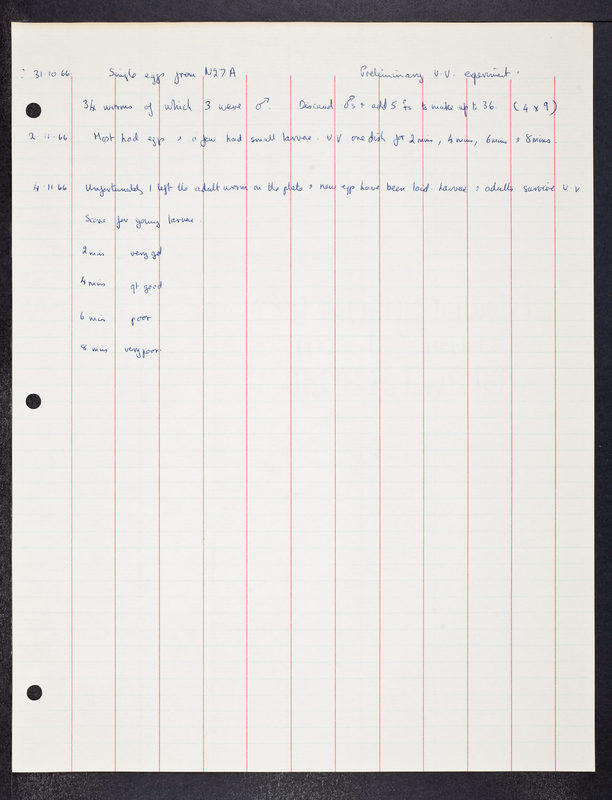 31.10.66 Single eggs from N27A Preliminary U.V. experiment.
34 worms of which 3 were ♂. Discard ♂s + add 5 ⚥s to make up to 36 (4 x 9)
2.11.66 Most had eggs & a few had small larvae. U V one dish for 2 mins, 4 mins, 6 mins & 8 mins.
4.11.66 Unfortunately I left the adult worm on the plate & new eggs have been laid. Larvae & adults survive U.V
Score for young larvae.
2 mins very gd
4 mins qt good
6 min poor
8 min very poor